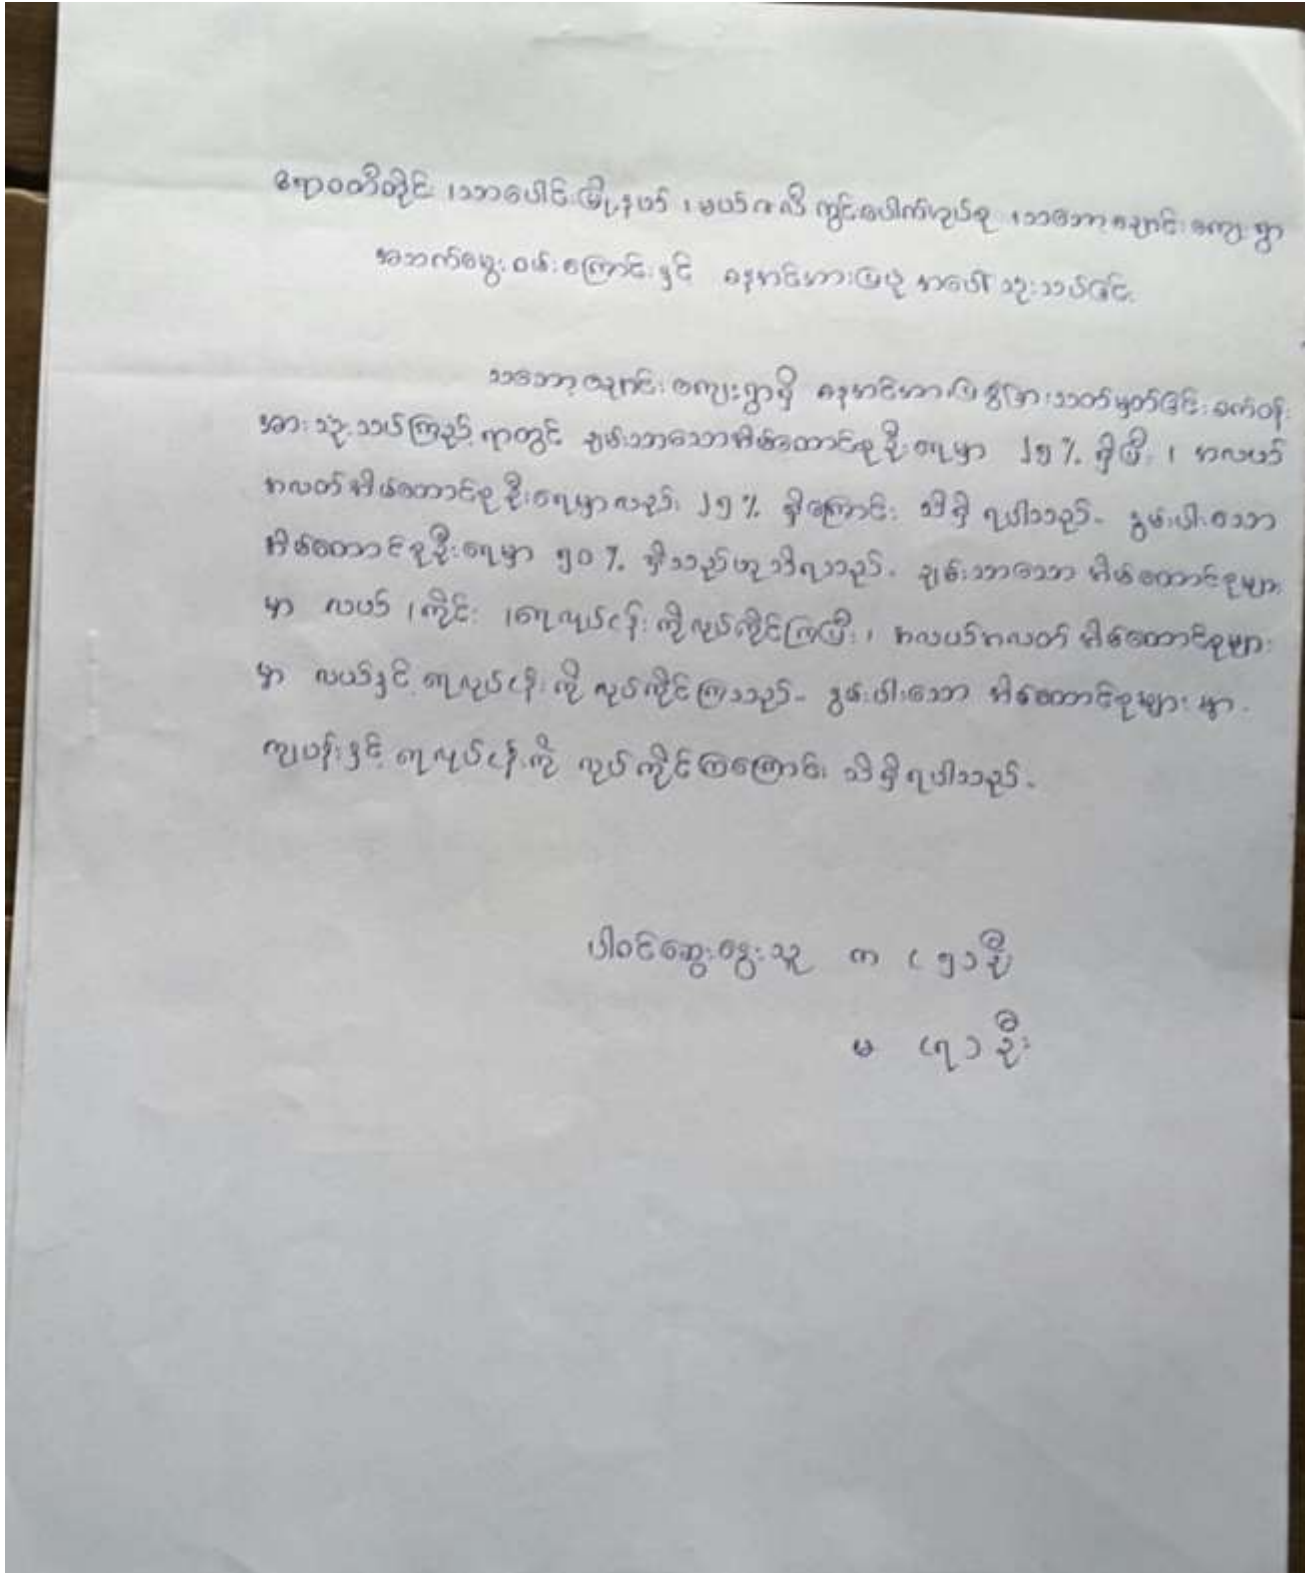 ဧရာဝတီတိုင်း ၊သာပေါင်းမြို့နယ် ၊ မယ်ဇလီကွင်းပေါက်အုပ်စု ၊သဘောချောင်းကျေးရွာ
အသက်မွေးဝမ်းကြောင်းနှင့် နေ့စဉ်အားပြု မှုအပေါ် သုံးသပ်ခြင်း
သဘောချောင်းကျေးရွာရှိ ခွဲခြားသတ်မှတ်ခြင်း
အား သုံးသပ်ကြည့်ရာတွင် ချမ်းသာသောအိမ်ထောင်စုဦးရေမှာ ၂၅% ရှိပြီး ၊ အလယ်
အလတ်အိမ်ထောင်စုဦးရေမှာလည်း ၂၅% ရှိကြောင်း သိရှိရပါသည်- နွမ်းပါးသော
အိမ်ထောင်စုဦးရေမှာ ၅၀% ရှိသည်ဟုသိရသည်- ချမ်းသာသော အိမ်ထောင်စုများ
မှာ လယ် ၊ကိုင်း ၊ရေလုပ်ငန်းကိုလုပ်ကိုင်ကြပြီး ၊ အလယ်အလတ် အိမ်ထောင်စုများ
မှာ လယ်နှင့် ရေလုပ်ငန်းကို လုပ်ကိုင်ကြသည်- နွမ်းပါးသော အိမ်ထောင်စုများမှာ-
ကျပန်းနှင့် ရေလုပ်ငန်းကို လုပ်ကိုင်ကြကြောင်း သိရှိရပါသည်-
ပါဝင်ဆွေးနွေးသူ က (၅) ဦး
မ (၇) ဦး